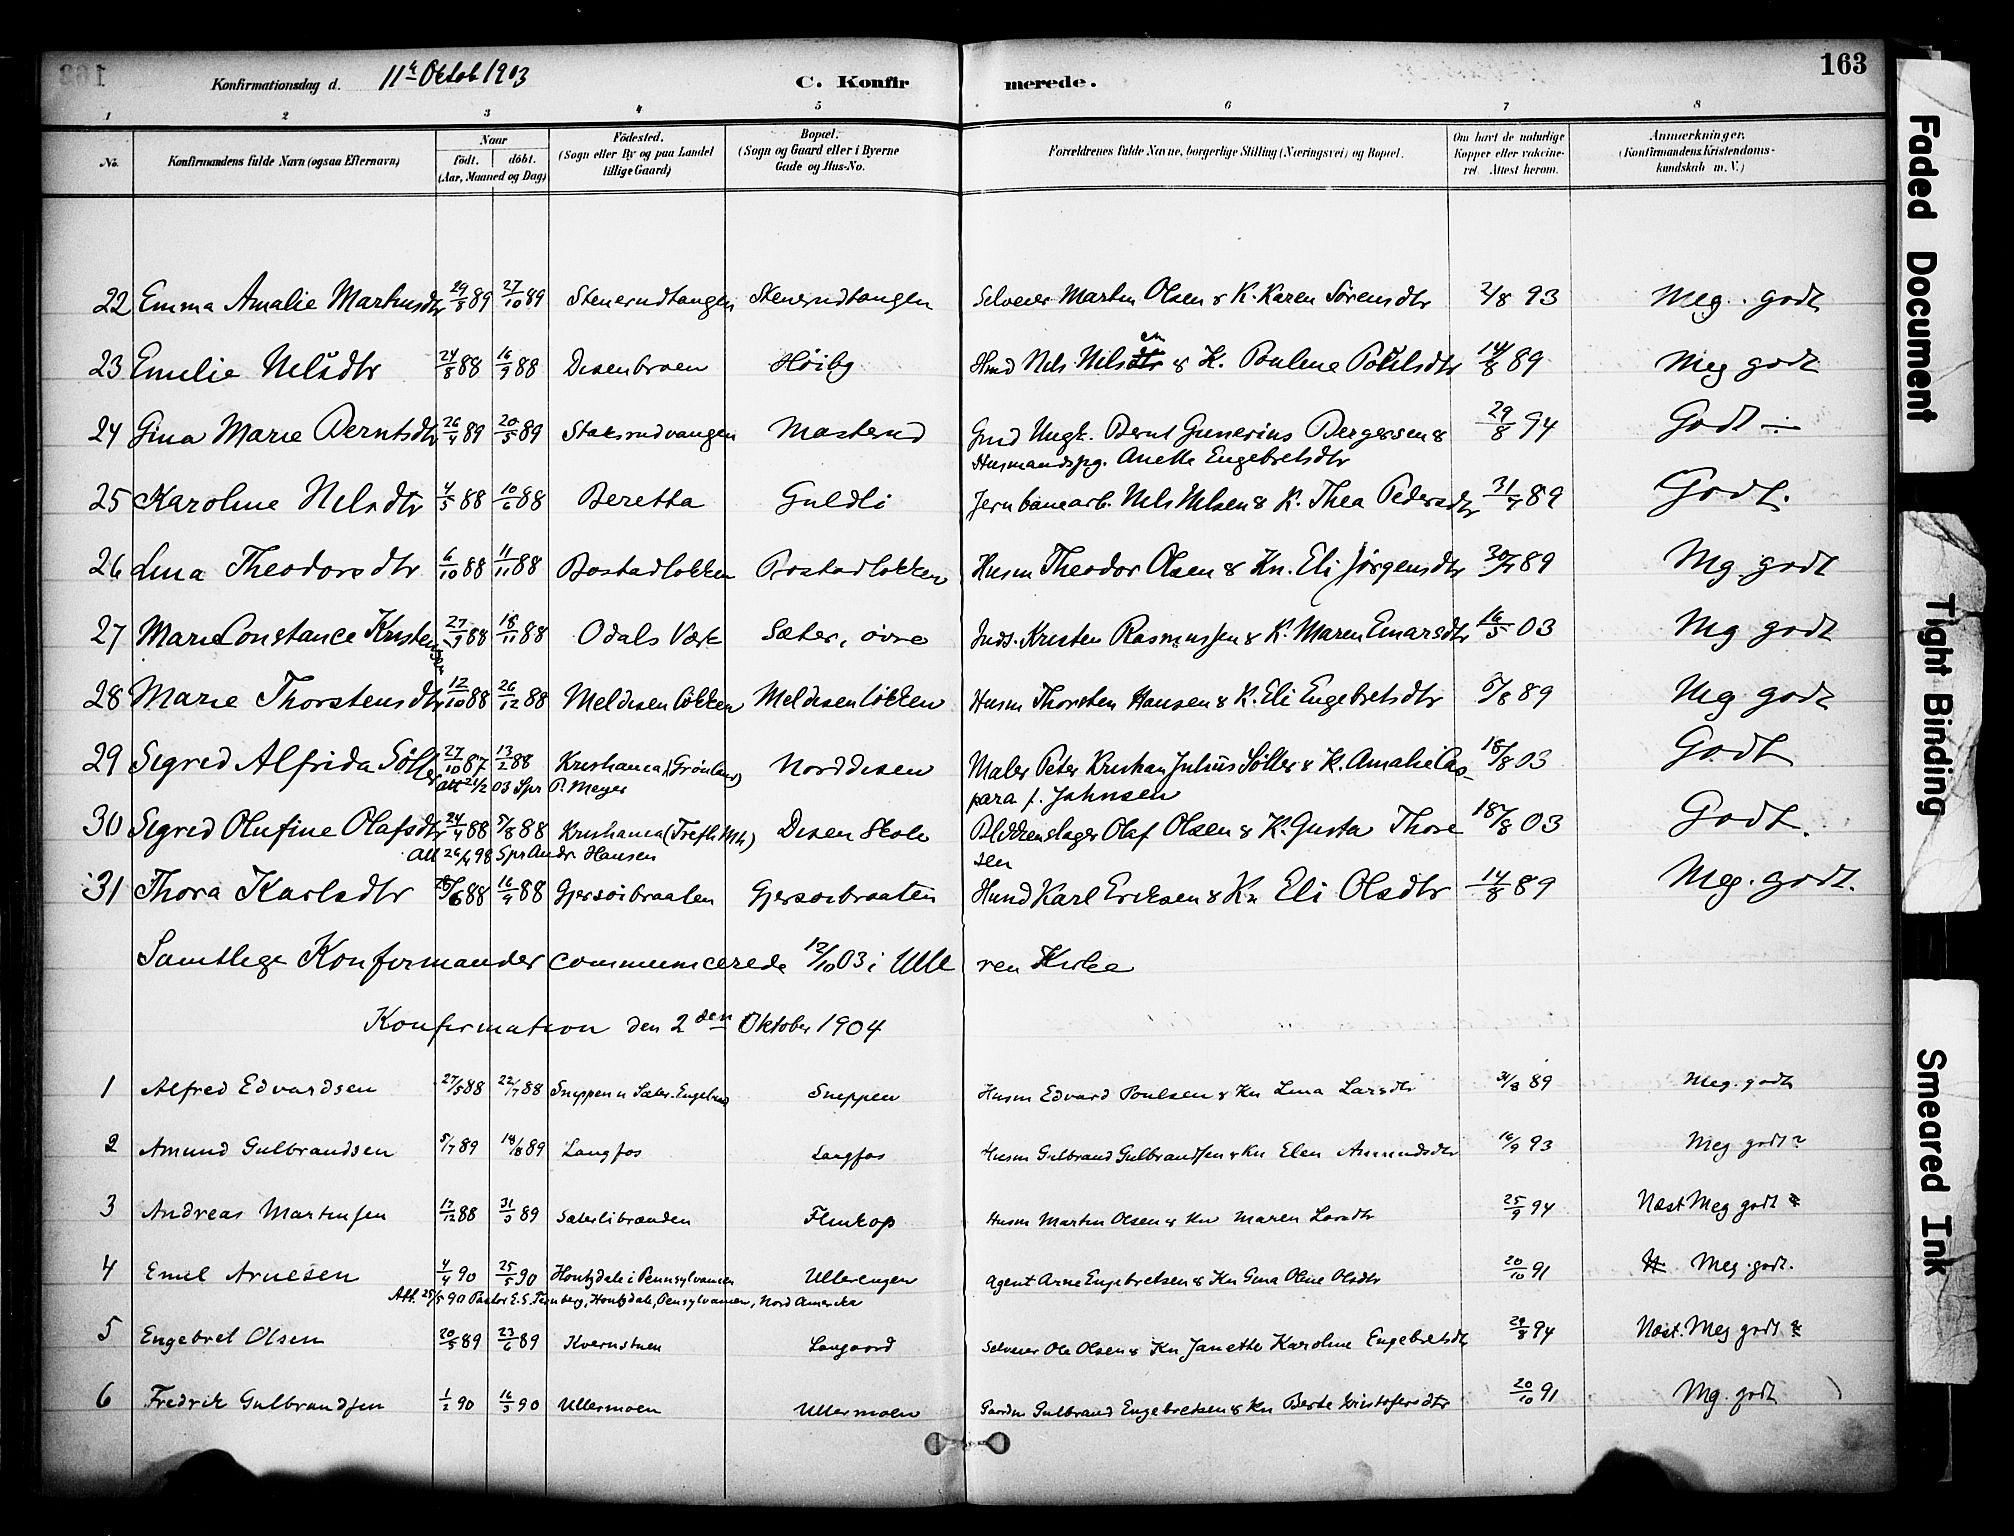 163
Konfirmationsdag d. 11te Oktob 1903
C. Konfirmerede.
1 2 3 4 5 6 7 8
No. Konfirmandens fulde Navn (ogsaa Efternavn) Naar født. døbt. (Aar, Maaned og Dag) Födested. (Sogn eller By og paa Landet tillige Gaard) Bopæl. (Sogn og Gaard eller i Byerne Gade og Hus-No. Forældrenes fulde Navne, borgerlige Stilling (Næringsvei) og Bopæl. Om havt de naturlige Kopper eller vakcineret. Attest herom. Anmærkninger. (Konfirmandens Kristendomskundskab m. V.)
22 Emma Amalie Martinsdtr 29/8 89 27/10 89 Stenerudtangen Stenerudtangen Selveier Martin Olsen & K. Karen Sørensdtr 2/8 93 Meg. godt
23 Emelie Nelsdtr 24/8 88 16/9 88 Disenbroen Høiby Hmd Nels Nilsen & K. Pouline Poulsdtr 14/8 89 Meg godt
24 Gina Marie Berntsdtr 26/4 89 20/5 89 Staksrudvangen Masterud Gmd Ungk. Bernt Gunerius Bergersen &
Husmandspg. Anette Engebretsdtr 29/8 94 Godt ÷
25 Karoline Nelsdtr 4/5 88 10/6 88 Beretta Guldli Jernbanearb. Nels Nelsen & K. Thea Pedersdtr 31/7 89 Godt.
26 Lina Theodorsdtr 6/10 88 11/11 88 Bostadløkken Bostadløkken Husm Theodor Olsen & Kn. Eli Jørgensdtr 30/7 89 Mg godt
27 Marie Constance Kristensen 27/9 88 18/11 88 Odals Værk Sæter, øvre Inds. Kristen Rasmussen & K. Maren Einarsdtr 16/5 03 Mg godt
28 Marie Thorstensdtr 12/10 88 26/12 88 Meldisenløkken Meldisenløkken Husm Thorsten Hansen & K. Eli Engebretsdtr 6/8 89 Mg godt
29 Sigrid Alfrida Søller 27/10 87 13/2 88 Kristiania (Grønland) Norddisen Maler Peter Kristian Julius Søller & K. Amalie Caspara f. Johnsen 18/8 03 Godt
Att 21/2 03 Spr P. Meyer
30 Sigrid Olufine Olafsdtr 24/4 88 5/8 88 Kristiania (Trefh. Mh) Disen Skole Blikkenslager Olaf Olsen & K. Gusta Thoresen 18/8 03 Godt.
Att 26/4 98 Spr Andr Hansen
31 Thora Karlsdtr 25/6 88 16/9 88 Gjersøibraaten Gjersøibraaten Husmd Karl Eriksen & Kn Eli Olsdtr 14/8 89 Meg. godt.
Samtlige Konfirmander communicerede 12/10 03 i Ulleren Kirke
Konfirmation den 2den Oktober 1904
1 Alfred Edvardsen 27/5 88 22/7 88 Sneppen u Sæter. Engebret Sneppen Husm Edvard Poulsen & Kn Lina Larsdtr 31/8 89 Meg. godt
2 Amund Gulbrandsen 5/7 89 18/8 89 Langfos Langfos Husm Gulbrand Gulbrandsen & Kn Elen Amundsdtr 16/9 93 Meg godt
3 Andreas Martinsen 17/12 88 31/3 89 Sæterlibraaden Flinkop Husm Martin Olsen & Kn Maren Larsdtr 25/9 94 Næst Meg godt
4 Emil Arnesen 4/4 90 25/5 90 Houtzdale i Pennsylvanien Ullerengen Agent Arne Engebretsen & Kn Gina Oline Olsdtr 20/10 91 Meg. godt.
Att. 25/5 90 Pastor E. S. Ternberg, Houtzdale, Pensylvanien, Nord Amerika
5 Engebret Olsen 20/5 89 23/6 89 Kvernstuen Langaard Selveier Ole Olsen & Kn Janette Karoline Engebretsdtr 29/8 94 Næst. Meg godt
6 Fredrik Gulbrandsen 1/2 90 16/3 90 Ullermoen Ullermoen Gaardm Gulbrand Engebretsen & Kn Berte Kristofersdtr 20/10 91 Mg. godt
Faded Document
Tight Binding
Smeared Ink